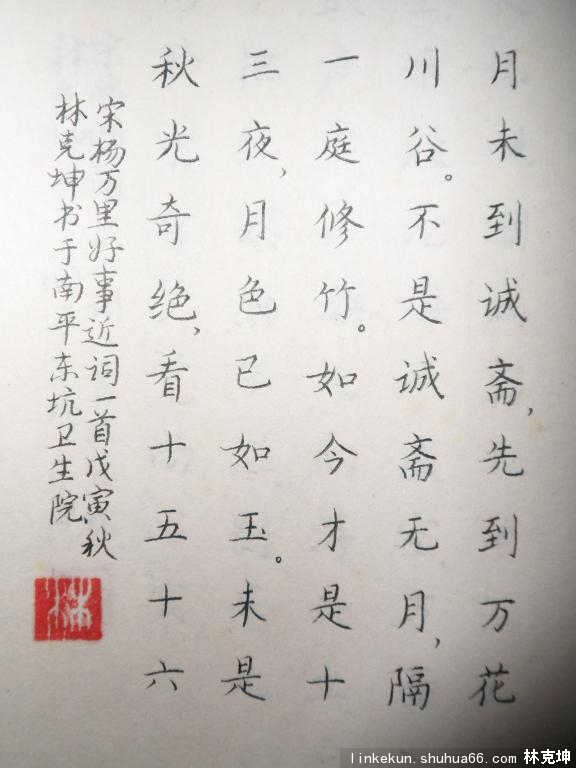 月未到诚斋，先到万花
川谷。不是诚斋无月，隔
一庭修竹。如今才是十
三夜，月色已如玉。未是
秋光奇绝，看十五十六
宋杨万里好事近词一首戊寅秋
林克坤书于南平东坑卫生院
林
linkekun.shuhua66.com 林克坤